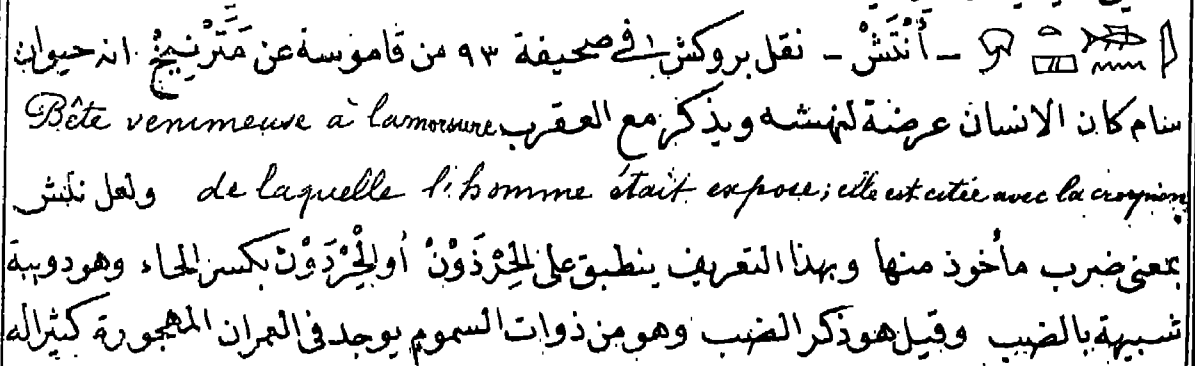 - أَنْتَشْ - نقل بروكش في صحيفة ٩٣ من قاموسة عن مَتَرْنِيخْ انه حيوان
سام كان الانسان عرضة لنهشه ويذكر مع العقرب Bête venimeuse à la morsure
de laquelle l'homme était exposé; elle est citée avec la ولعل نتش
بمعنى ضرب مأخوذ منها وبهذا التعريف ينطبق على الحِرْذَوْنْ أو الحِرْدَوْنْ بكسر الحاء وهو دويبة
شبيهة بالضب وقيل هو ذكر الضب وهو من ذوات السموم يوجد في العمران المهجورة كثيرا له